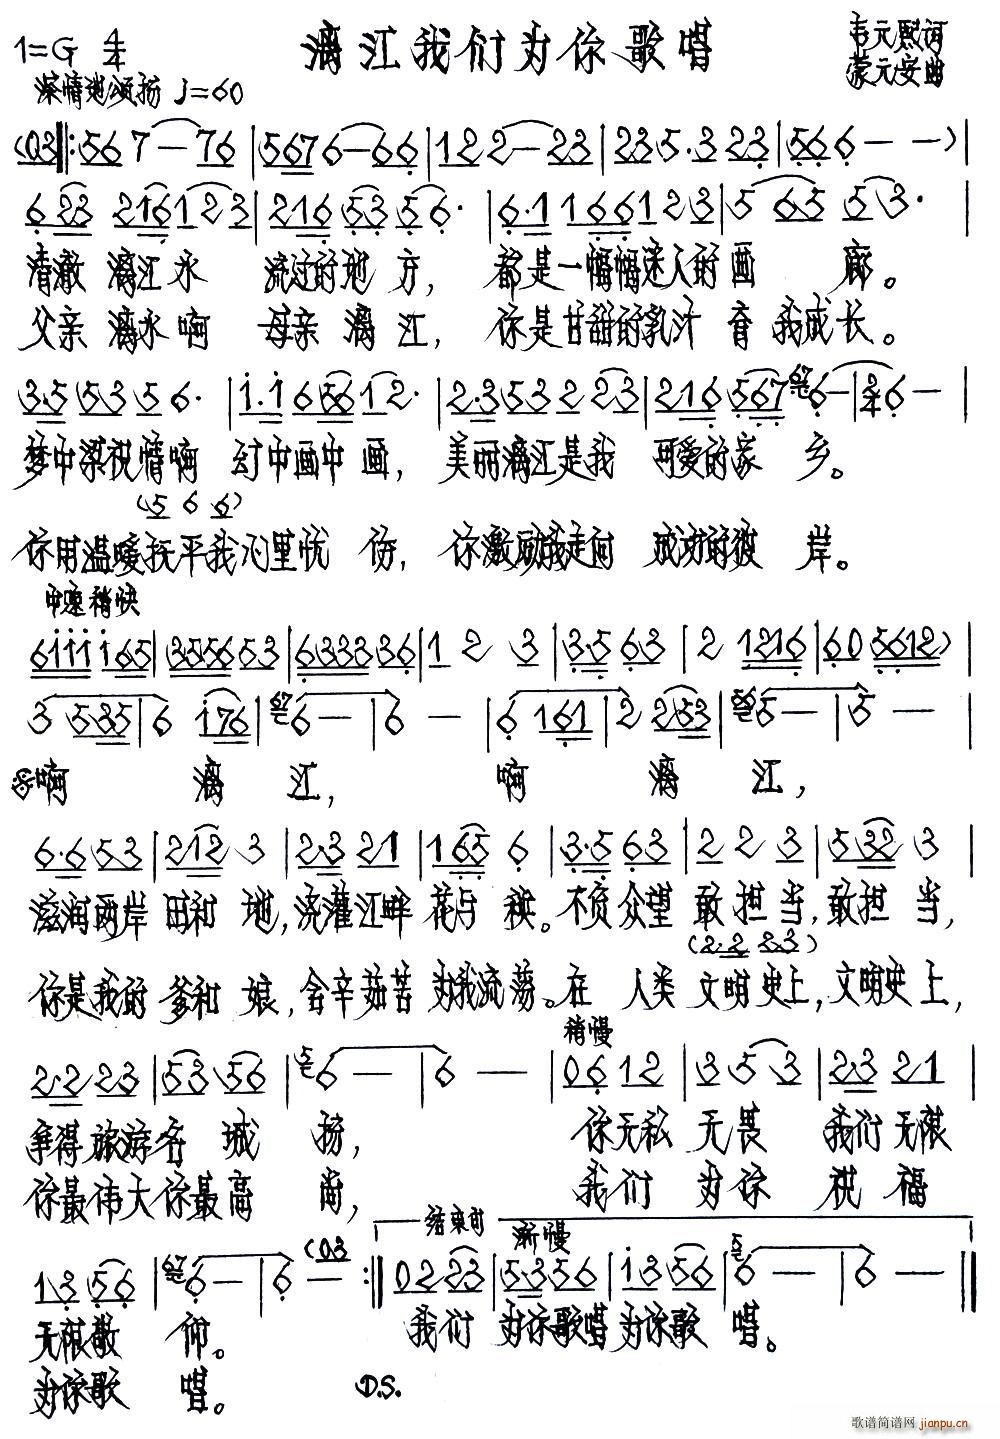 漓江我们为你歌唱
1=G 4/4
韦元熙词
蒙元安曲
深情地颂扬 ♩=60
(03‖:56 7—76|5676—66|122—23|235.323|566——)|
623 216123|216 53 56.|6.11661 23|5 65 53.|
清澈漓江水 流过的地方，都是一幅幅迷人的画廊。
父亲漓水啊 母亲漓江，你是甘甜的乳汁育我成长。
3.5 53 56.|1.1 656 12.|2.353 2 23|216 567 6—|2/4 6—|
梦中 情啊 幻中画中画，美丽漓江是我 可爱的家乡。
(5 6 6)
你用温暖抚平我心里忧伤，你激励我走向 成功的彼岸。
中速稍快
6111 165|3556 53|6333 36|1 2 3|3.5 63|2 1216|60 5612)|
3 535|6 176|6—|6—|6 161|2 253|5—|5—|
啊 漓江， 啊 漓江，
6.6 53|212 3|2.3 21|165 6|3.5 63|2 2 3|532 3|
滋润两岸田和地，浇灌江畔花与秧。不负众望敢担当，敢担当，
(2.2 23)
你是我的爹和娘，含辛茹苦为我流荡。在人类文明史上，文明史上，
稍慢
2.2 23|53 56|6—|6—|06 12|3 5 3|2.3 21|
争得旅游名城扬， 你无私无畏 我们无限
你最伟大你最高尚， 我们为你祝福
结束时 渐慢
13 56|6—|6 — (03:‖02 23|53 56|13 56|6—|6—‖
无限敬仰。 我们为你歌唱为你歌唱。
为你歌唱。 D.S.
歌谱简谱网 jianpu.cn